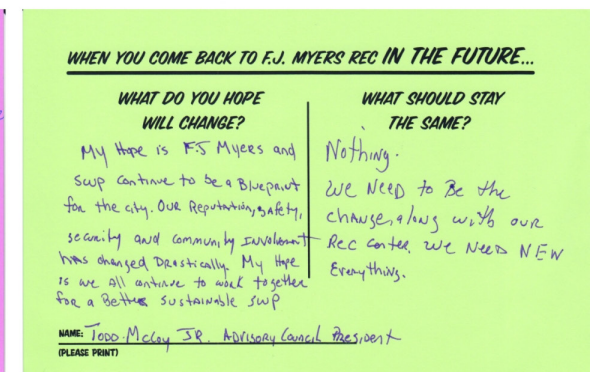 WHEN YOU COME BACK TO F.J. MYERS REC IN THE FUTURE...
WHAT DO YOU HOPE
WILL CHANGE?
My Hope is F.J Myers and
SWP continue to be a Blueprint
for the city. OUR Reputation, safety,
security and community Involvement
has changed Drastically. My Hope
is we All continue to work together
for a Better sustainable SWP
WHAT SHOULD STAY
THE SAME?
Nothing.
We NEED to Be the
change, along with our
Rec Center. We NEED NEW
Everything.
NAME: TODD McCloy JR. Advisory Council President
(PLEASE PRINT)